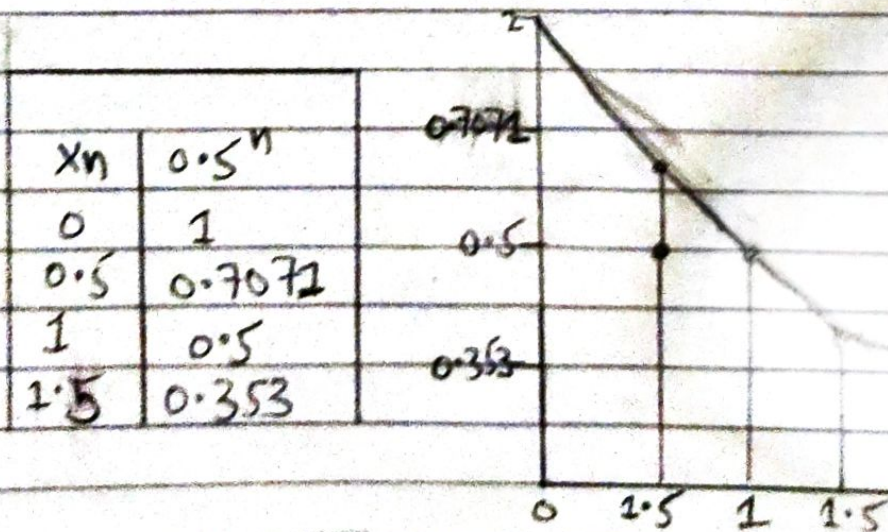 xn 0.5ⁿ
0 1
0.5 0.7071
1 0.5
1.5 0.353
1
0.7071
0.5
0.353
0 1.5 1 1.5